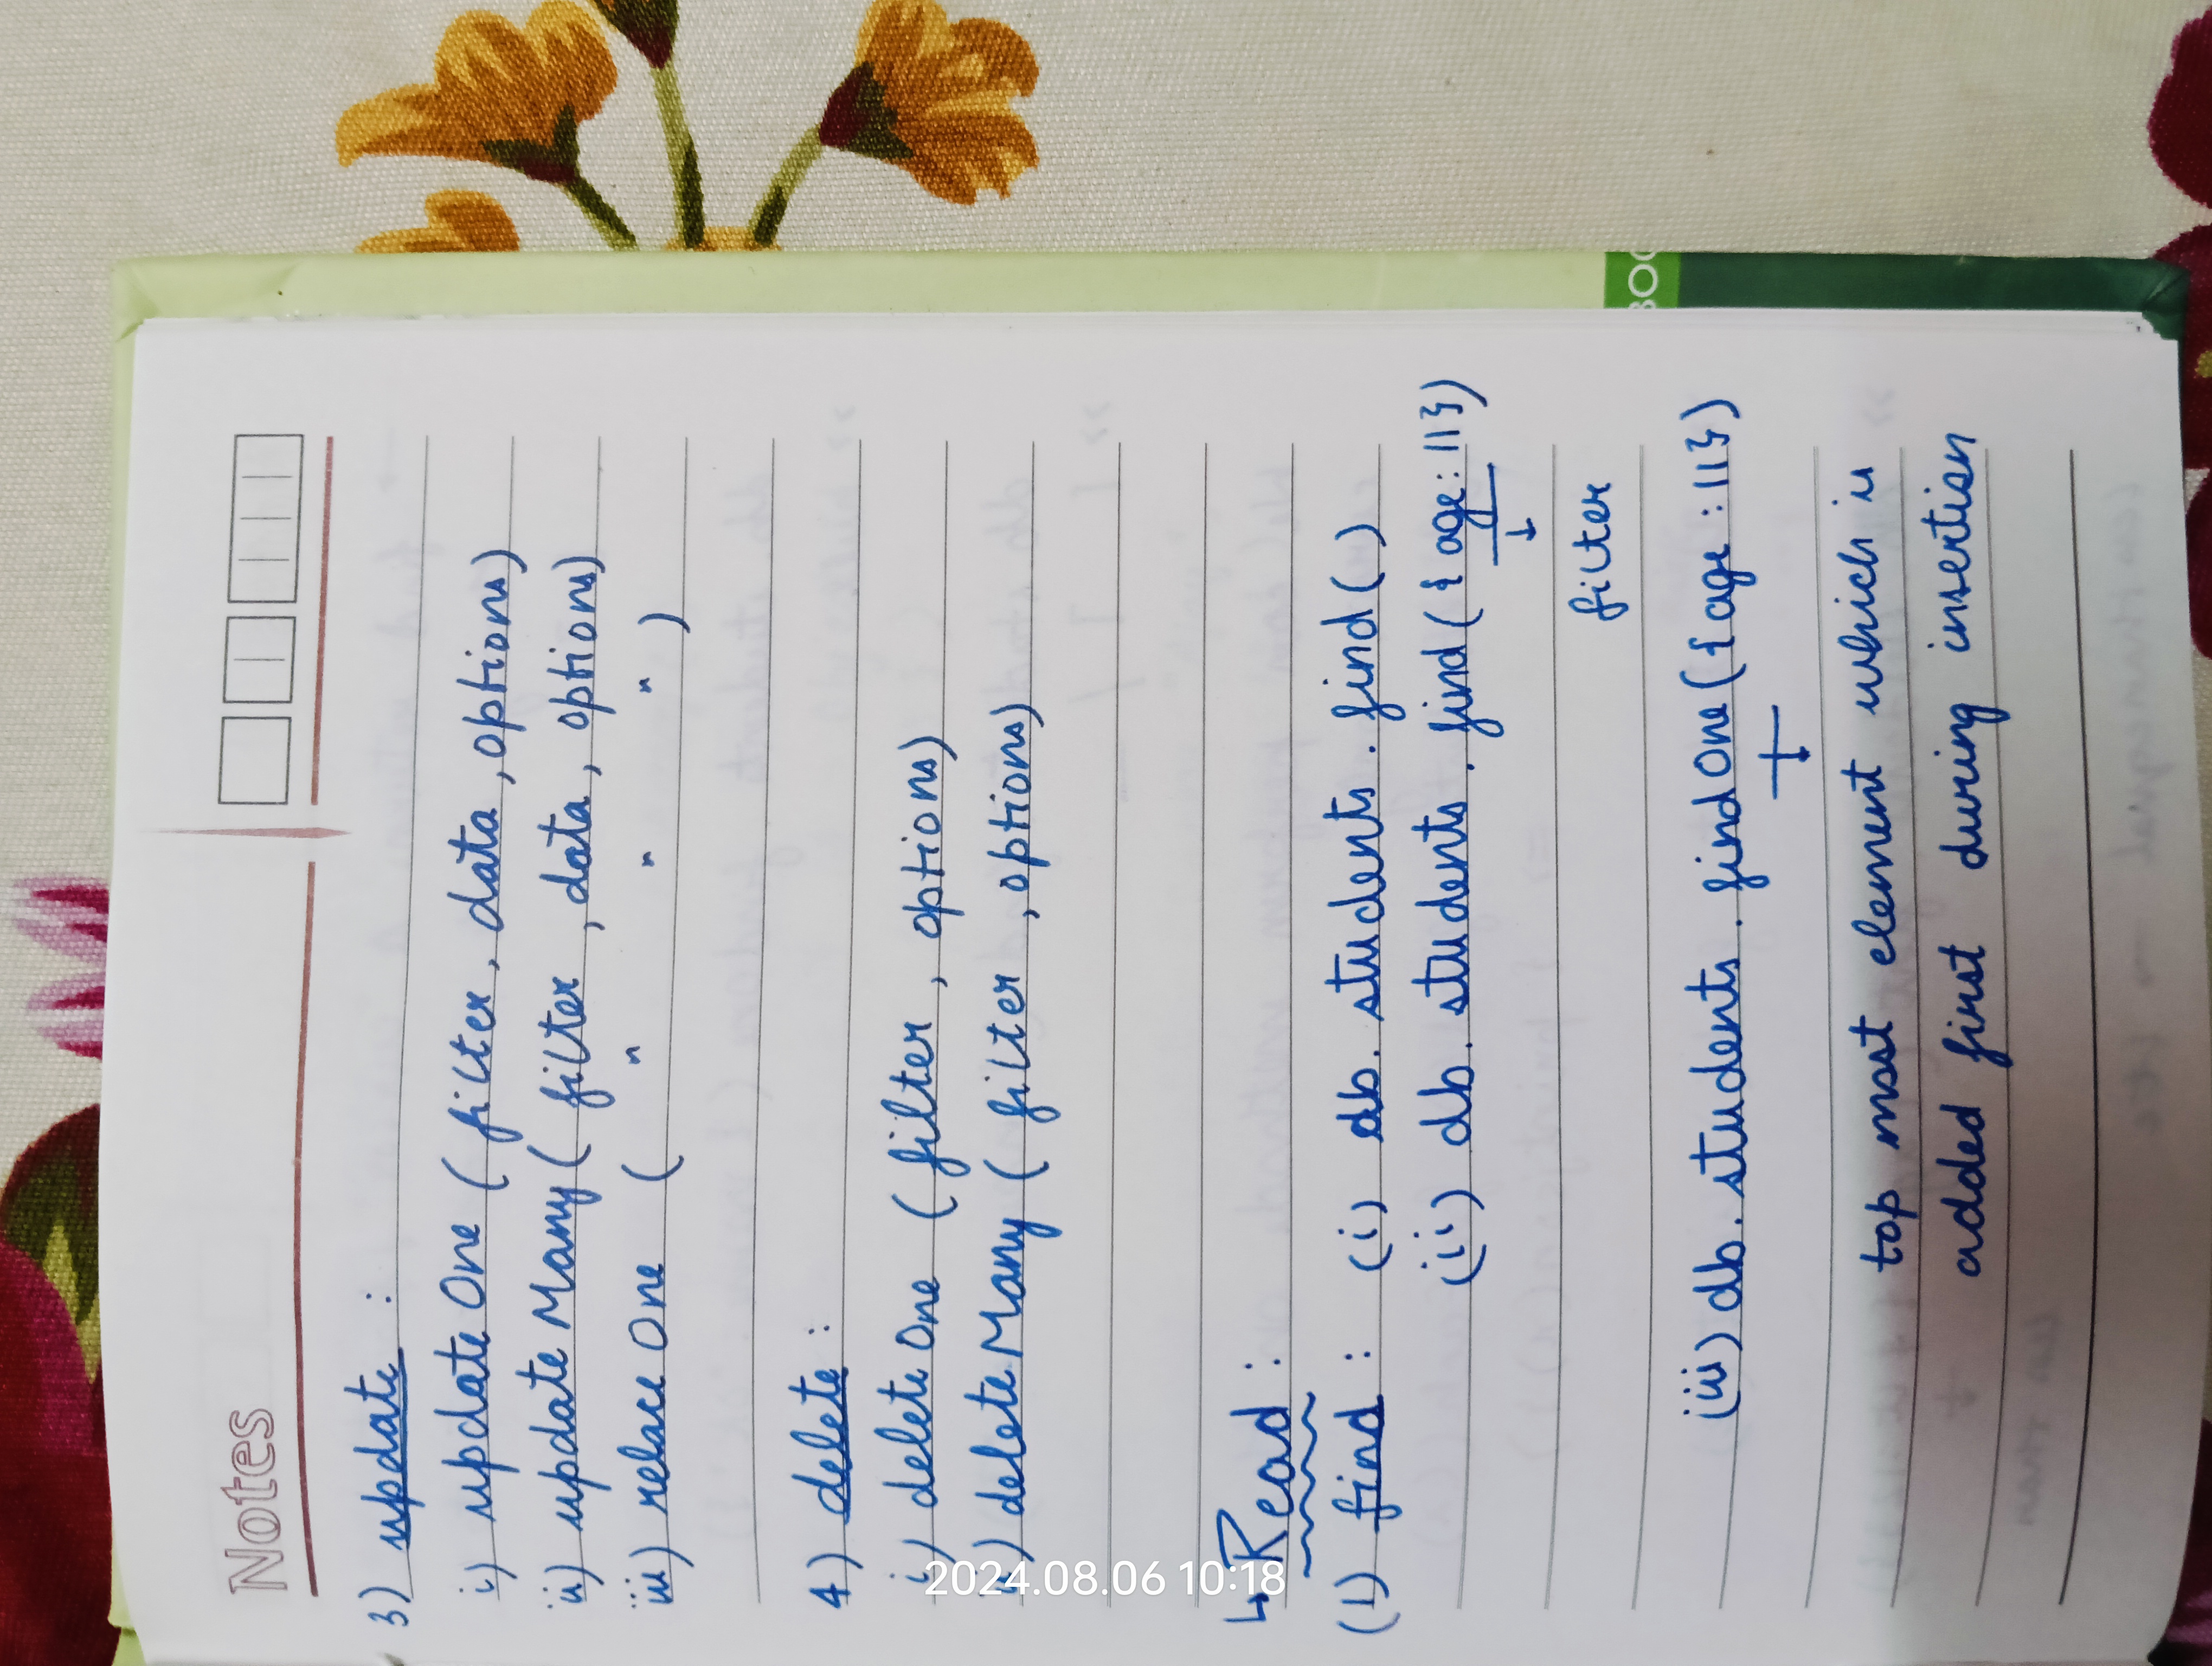 Notes
3) update :
i) update One ( filter, data, options)
ii) update Many ( filter , data, options)
iii) relace One ( " " " )
4) delete :
i) delete One ( filter , options)
) delete Many ( filter , options)
↳ Read :
(1) find : (i) db. students. find ( )
(ii) db. students. find ( { age : 11 } )
↓
filter
(iii) db. students. find One ( { age : 11 } )
↓
top most element which is
added first during insertion
2024.08.06 10:18